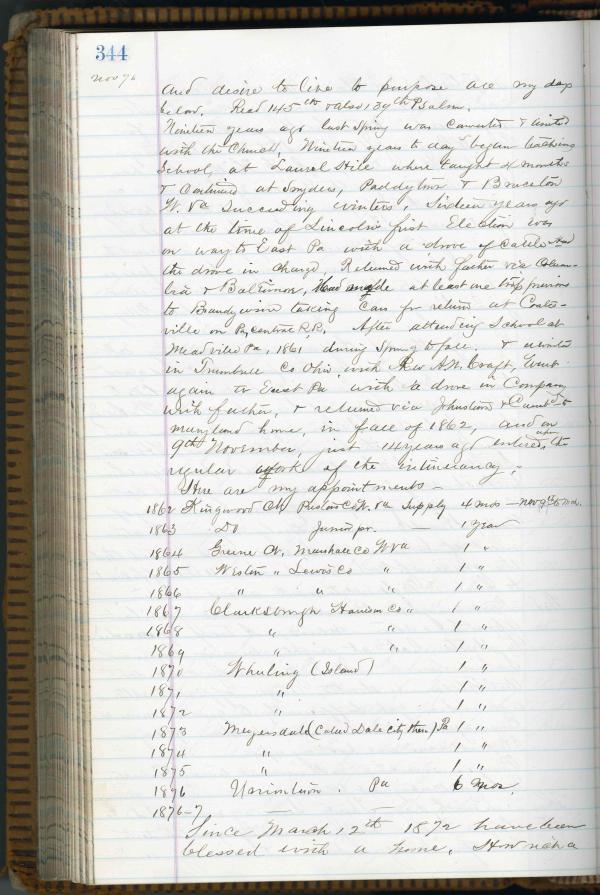 344
Nov 76
and desire to live to purpose are my days
below. Read 145th & also 139th Psalm.
Nineteen years ago last Spring was converted & united
with the Church, Nineteen years to day began teaching
School, at Laurel Hill where taught 4 months
& Continued at Snyders, Paddytown & Bruceton
W. Va Succeeding winters, Sixteen years ago
at the time of Lincolns first Election was
on way to East Pa with a drove of Cattle had
the drove in charge. Returned with father via Colum-
bia & Baltimore, Had made at least one trip previous
to Brandywine taking Cars for return at Coates-
ville on Pa Central R.R. After attending School at
Meadville Pa, 1861 during Spring to fall. &
in Trumbull Co Ohio with Rev A.N. Craft, Went
again to East Pa with drove in Company
with father, & returned via Johnstown & Cumb'd to
Maryland home, in fall of 1862, and on
9th November, just 14 years ago entered upon the
regular work of the itinerancy.
Here are my appointments -
1862 Kingwood Ch Preston Co W. Va Supply 4 mos - Nov 9th to Mch.
1863 Do Junior pr. - 1 Year
1864 Greene Ch. Marshall Co W Va 1 "
1865 Weston " Lewis Co " 1 "
1866 " " " 1 "
1867 Clarksburgh Harrison Co " 1 "
1868 " " 1 "
1869 " " 1 "
1870 Wheeling (Island) 1 "
1871 " 1 "
1872 " 1 "
1873 Meyersdale (Called Dale City then) Pa 1 "
1874 " 1 "
1875 " 1 "
1876 Uniontown. Pa 6 mos.
1876-7
Since March 12th 1872 have been
blessed with a home. How rich a